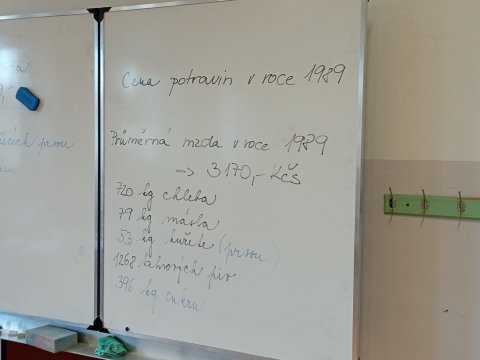 Cena potravin v roce 1989
Průměrná mzda v roce 1989
→ 3170,- Kčs
720 kg chleba
79 kg másla
53 kg kuřete (prsou)
1268 lahvových piv
396 kg cukru